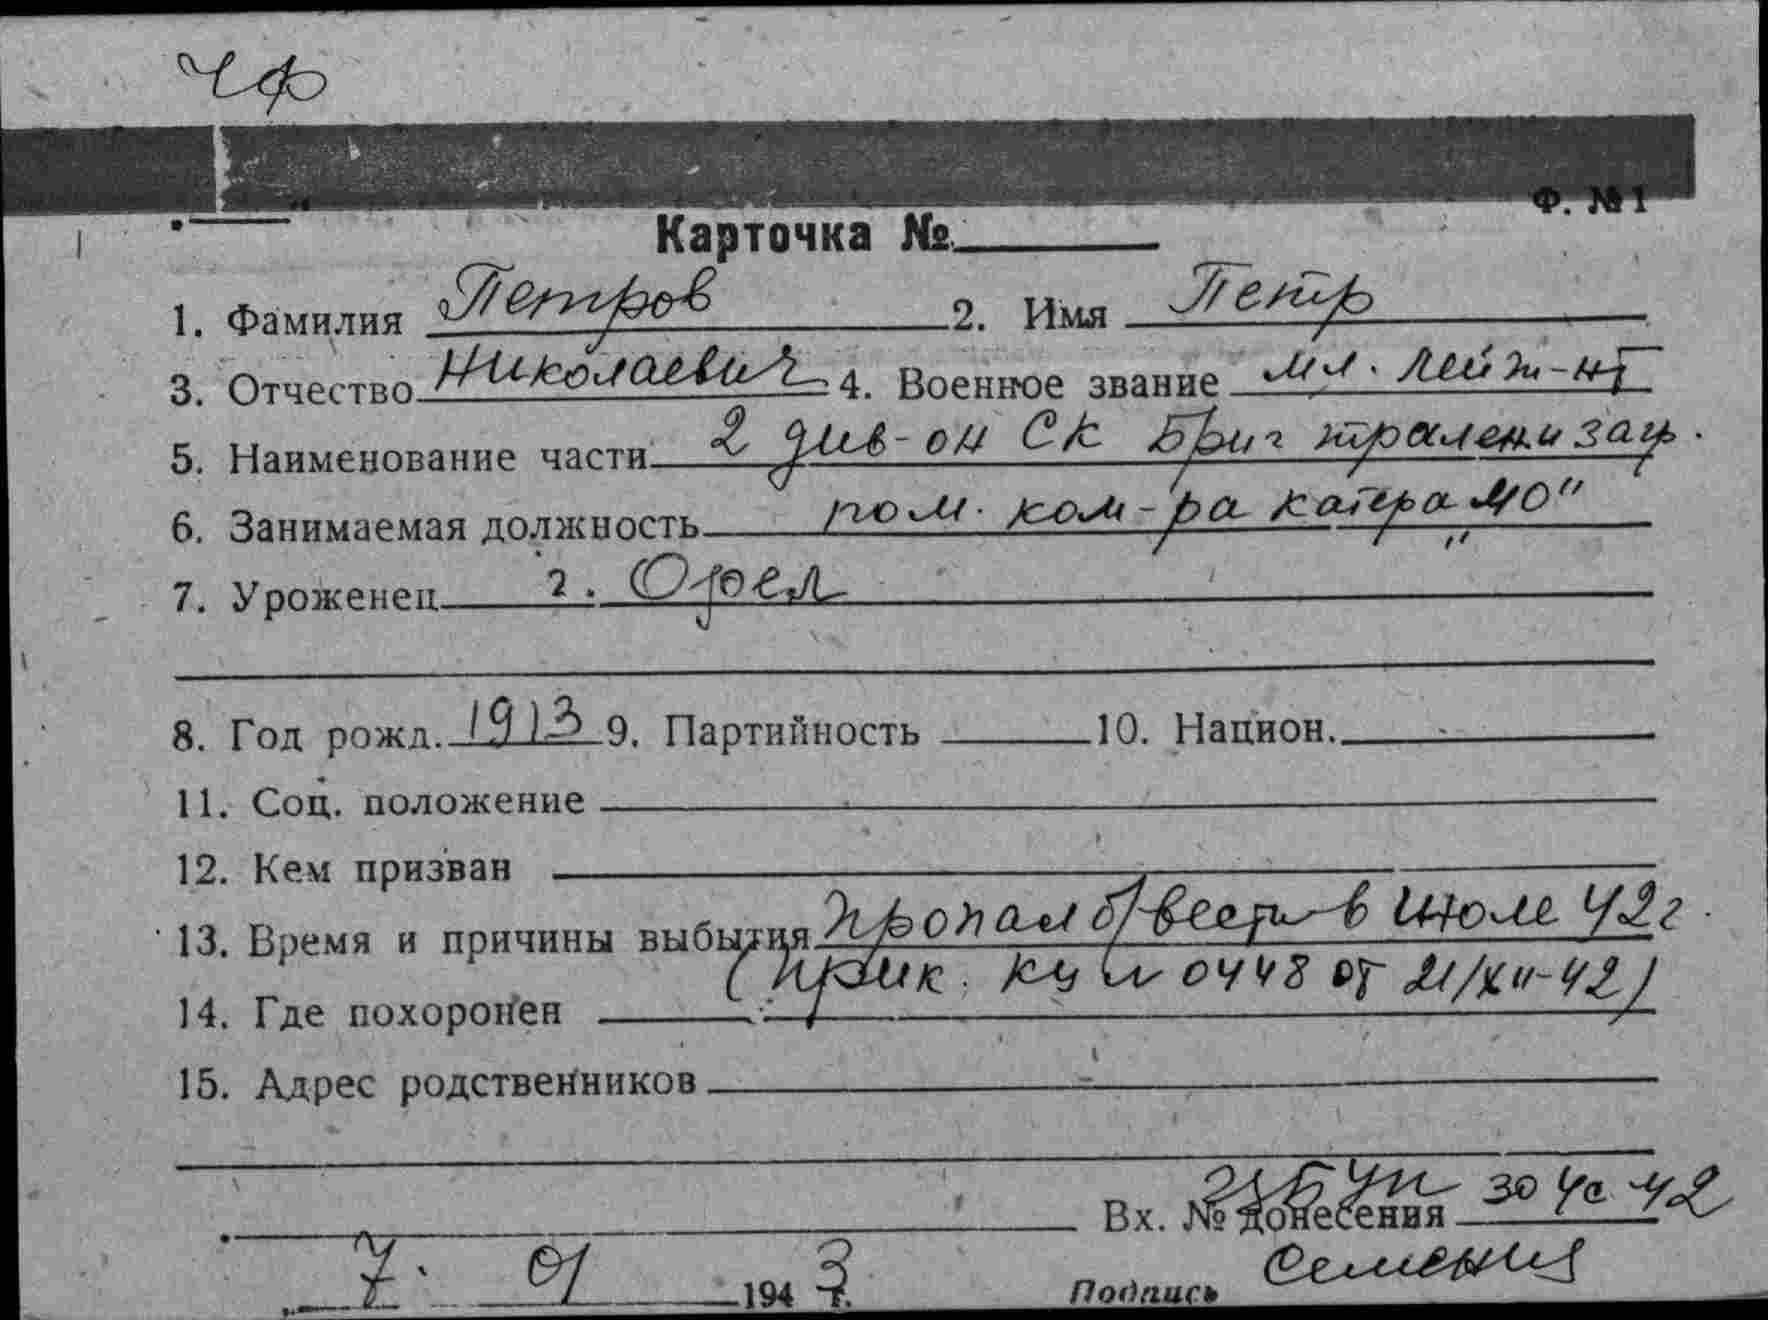 ЧФ
Ф. № 1
Карточка №
1. Фамилия Петров 2. Имя Петр
3. Отчество Николаевич 4. Военное звание мл. лейт-нт
5. Наименование части 2 див-он СК Бриг траления заг.
6. Занимаемая должность пом. ком-ра катера „МО"
7. Уроженец г. Орел
8. Год рожд. 1913 9. Партийность 10. Национ.
11. Соц. положение
12. Кем призван
13. Время и причины выбытия Пропал б/вести в июле 42г.
(прик. КУ № 0448 от 21/XII-42)
14. Где похоронен
15. Адрес родственников
Вх. № донесения 42
7. 01 1943 г. Подпись